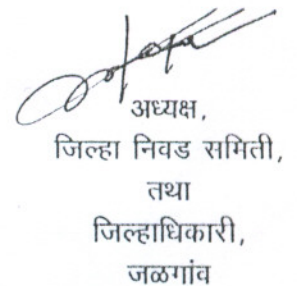 अध्यक्ष,
जिल्हा निवड समिती,
तथा
जिल्हाधिकारी,
जळगांव